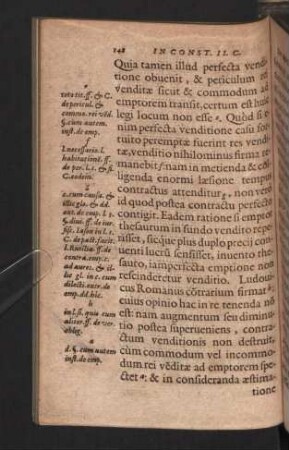 148 IN CONST. II. C.
Quia tamen illud perfecta vendi-
tione obuenit, & periculum rei
venditæ sicut & commodum ad
emptorem transit, certum est huic
legi locum non esse. Quòd si e-
nim perfecta venditione casu for-
tuito peremptæ fuerint res vendi-
tæ, venditio nihilominus firma re-
manebit: nam in metienda & col-
ligenda enormi læsione tempus
contractus attenditur, non verò
id quod postea contractu perfecto
contigit. Eadem ratione si emptor
thesaurum in fundo vendito repe-
riasset, sicque plus duplo precij con-
uenti lucri sensisset, inuento the-
sauro, iam perfecta emptione non
rescinderetur venditio. Ludoui-
cus Romanus cōtrarium firmat:
cuius opinio hac in re tenenda nō
est: nam augmentum seu diminu-
tio postea superueniens, contra-
ctum venditionis non destruit,
cùm commodum vel incommo-
dum rei vēditæ ad emptorem spe-
ctet: & in consideranda æstima-
tione
tota tit. ff. & C.
de pericul. &
commo. rei vēd.
§. cum autem
inst. de emp.
f
l. necessario. l.
habitationū. ff.
de per. l. 1. & fi.
C. eodem.
h
in l. si. quis cum
aliter. ff. de ver.
oblig.
a
d. §. cum autem
inst. de emp.